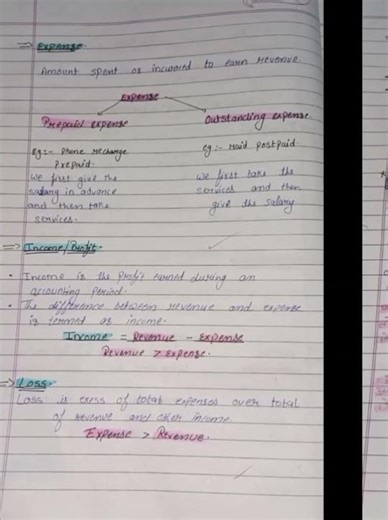 => Expense.
Amount spent or incurred to earn revenue
Expense
Prepaid expense
Outstanding expense
Eg:- Phone recharge
Prepaid.
We first give the
salary in advance
and then take
services.
eg:- Maid Postpaid.
We first take the
services and then
give the salary
=> Income/Profit
• Income is the Profit earned during an
accounting Period.
• The difference between revenue and expense
is termed as income.
Income = Revenue - Expense
Revenue > Expense.
=> Loss.
Loss is exess of total expenses over total
of revenue and other income.
Expense > Revenue.